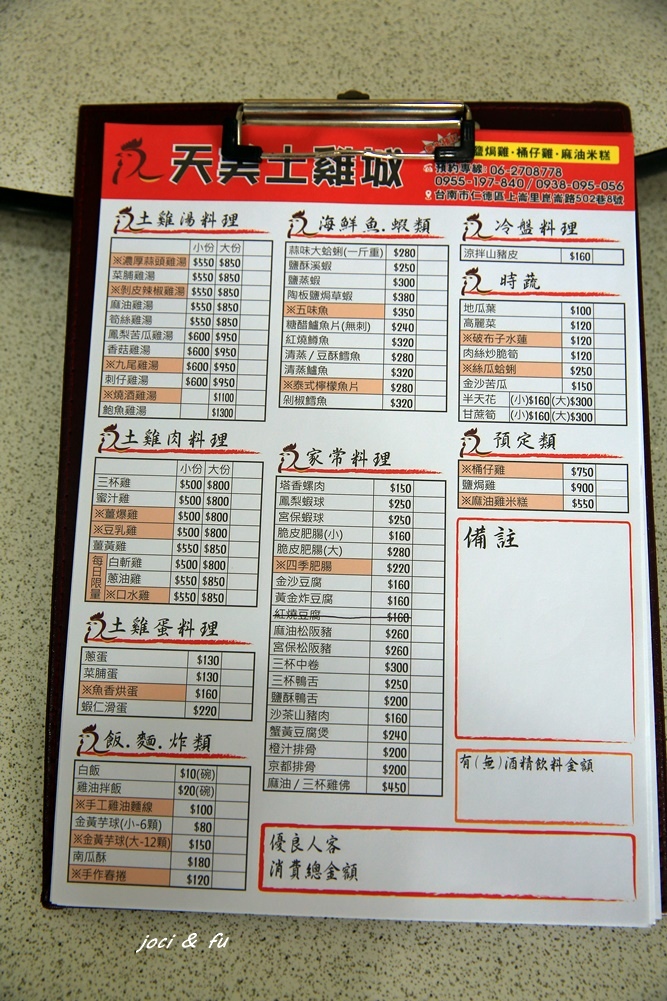 天美土雞城
鹽焗雞・桶仔雞・麻油米糕
預約專線：06-2708778
0955-197-840 / 0938-095-056
台南市仁德區上崙里崑崙路502巷8號
土雞湯料理
小份 大份
※濃厚蒜頭雞湯 $550 $850
菜脯雞湯 $550 $850
※剝皮辣椒雞湯 $550 $850
麻油雞湯 $550 $850
筍絲雞湯 $550 $850
鳳梨苦瓜雞湯 $600 $950
香菇雞湯 $600 $950
※九尾雞湯 $600 $950
刺仔雞湯 $600 $950
※燒酒雞湯 $1100
鮑魚雞湯 $1300
土雞肉料理
小份 大份
三杯雞 $500 $800
蜜汁雞 $500 $800
※薑爆雞 $500 $800
※豆乳雞 $500 $800
薑黃雞 $550 $850
每日限量
白斬雞 $500 $800
蔥油雞 $550 $850
※口水雞 $550 $850
土雞蛋料理
蔥蛋 $130
菜脯蛋 $130
※魚香烘蛋 $160
蝦仁滑蛋 $220
飯.麵.炸類
白飯 $10(碗)
雞油拌飯 $20(碗)
※手工雞油麵線 $100
金黃芋球(小-6顆) $80
※金黃芋球(大-12顆) $150
南瓜酥 $180
※手作春捲 $120
海鮮魚.蝦類
蒜味大蛤蜊(一斤重) $280
鹽酥溪蝦 $250
鹽蒸蝦 $300
陶板鹽焗草蝦 $380
※五味魚 $350
糖醋鱸魚片(無刺) $240
紅燒鱘魚 $320
清蒸 / 豆酥鱈魚 $280
清蒸鱸魚 $320
※泰式檸檬魚片 $280
剁椒鱈魚 $320
家常料理
塔香螺肉 $150
鳳梨蝦球 $250
宮保蝦球 $250
脆皮肥腸(小) $160
脆皮肥腸(大) $280
※四季肥腸 $220
金沙豆腐 $160
黃金炸豆腐 $160
紅燒豆腐 $160
麻油松阪豬 $260
宮保松阪豬 $260
三杯中卷 $300
三杯鴨舌 $250
鹽酥鴨舌 $200
沙茶山豬肉 $160
蟹黃豆腐煲 $240
橙汁排骨 $200
京都排骨 $200
麻油 / 三杯雞佛 $450
冷盤料理
涼拌山豬皮 $160
時蔬
地瓜葉 $100
高麗菜 $120
※破布子水蓮 $120
肉絲炒脆筍 $120
※絲瓜蛤蜊 $250
金沙苦瓜 $150
半天花 (小)$160(大)$300
甘蔗筍 (小)$160(大)$300
預定類
※桶仔雞 $750
鹽焗雞 $900
※麻油雞米糕 $550
備註
有(無)酒精飲料金額
優良人客
消費總金額
joci & fu